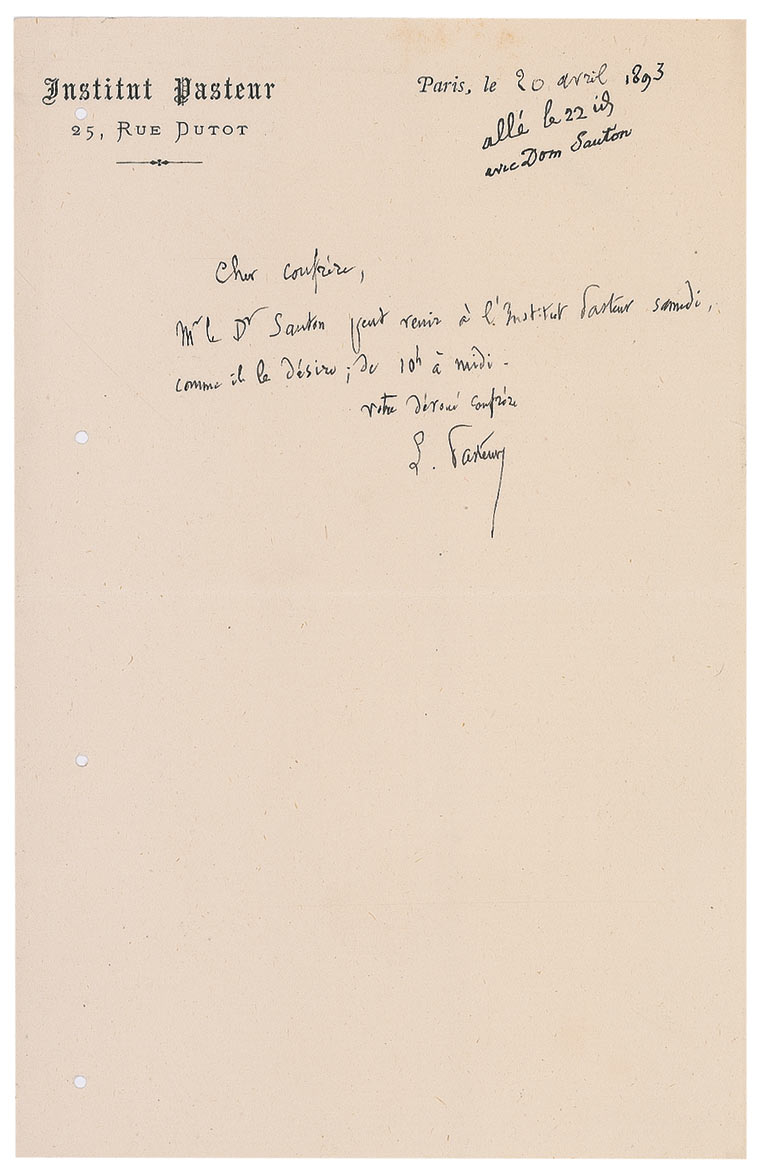 Institut Pasteur
25, RUE DUTOT
Paris, le 20 avril 1893
allé le 22 id
avec Dom Sauton
Cher confrère,
Mr le Dr Sauton peut venir à l'Institut Pasteur samedi,
comme il le désire; de 10h à midi.
votre dévoué confrère
L. Pasteur